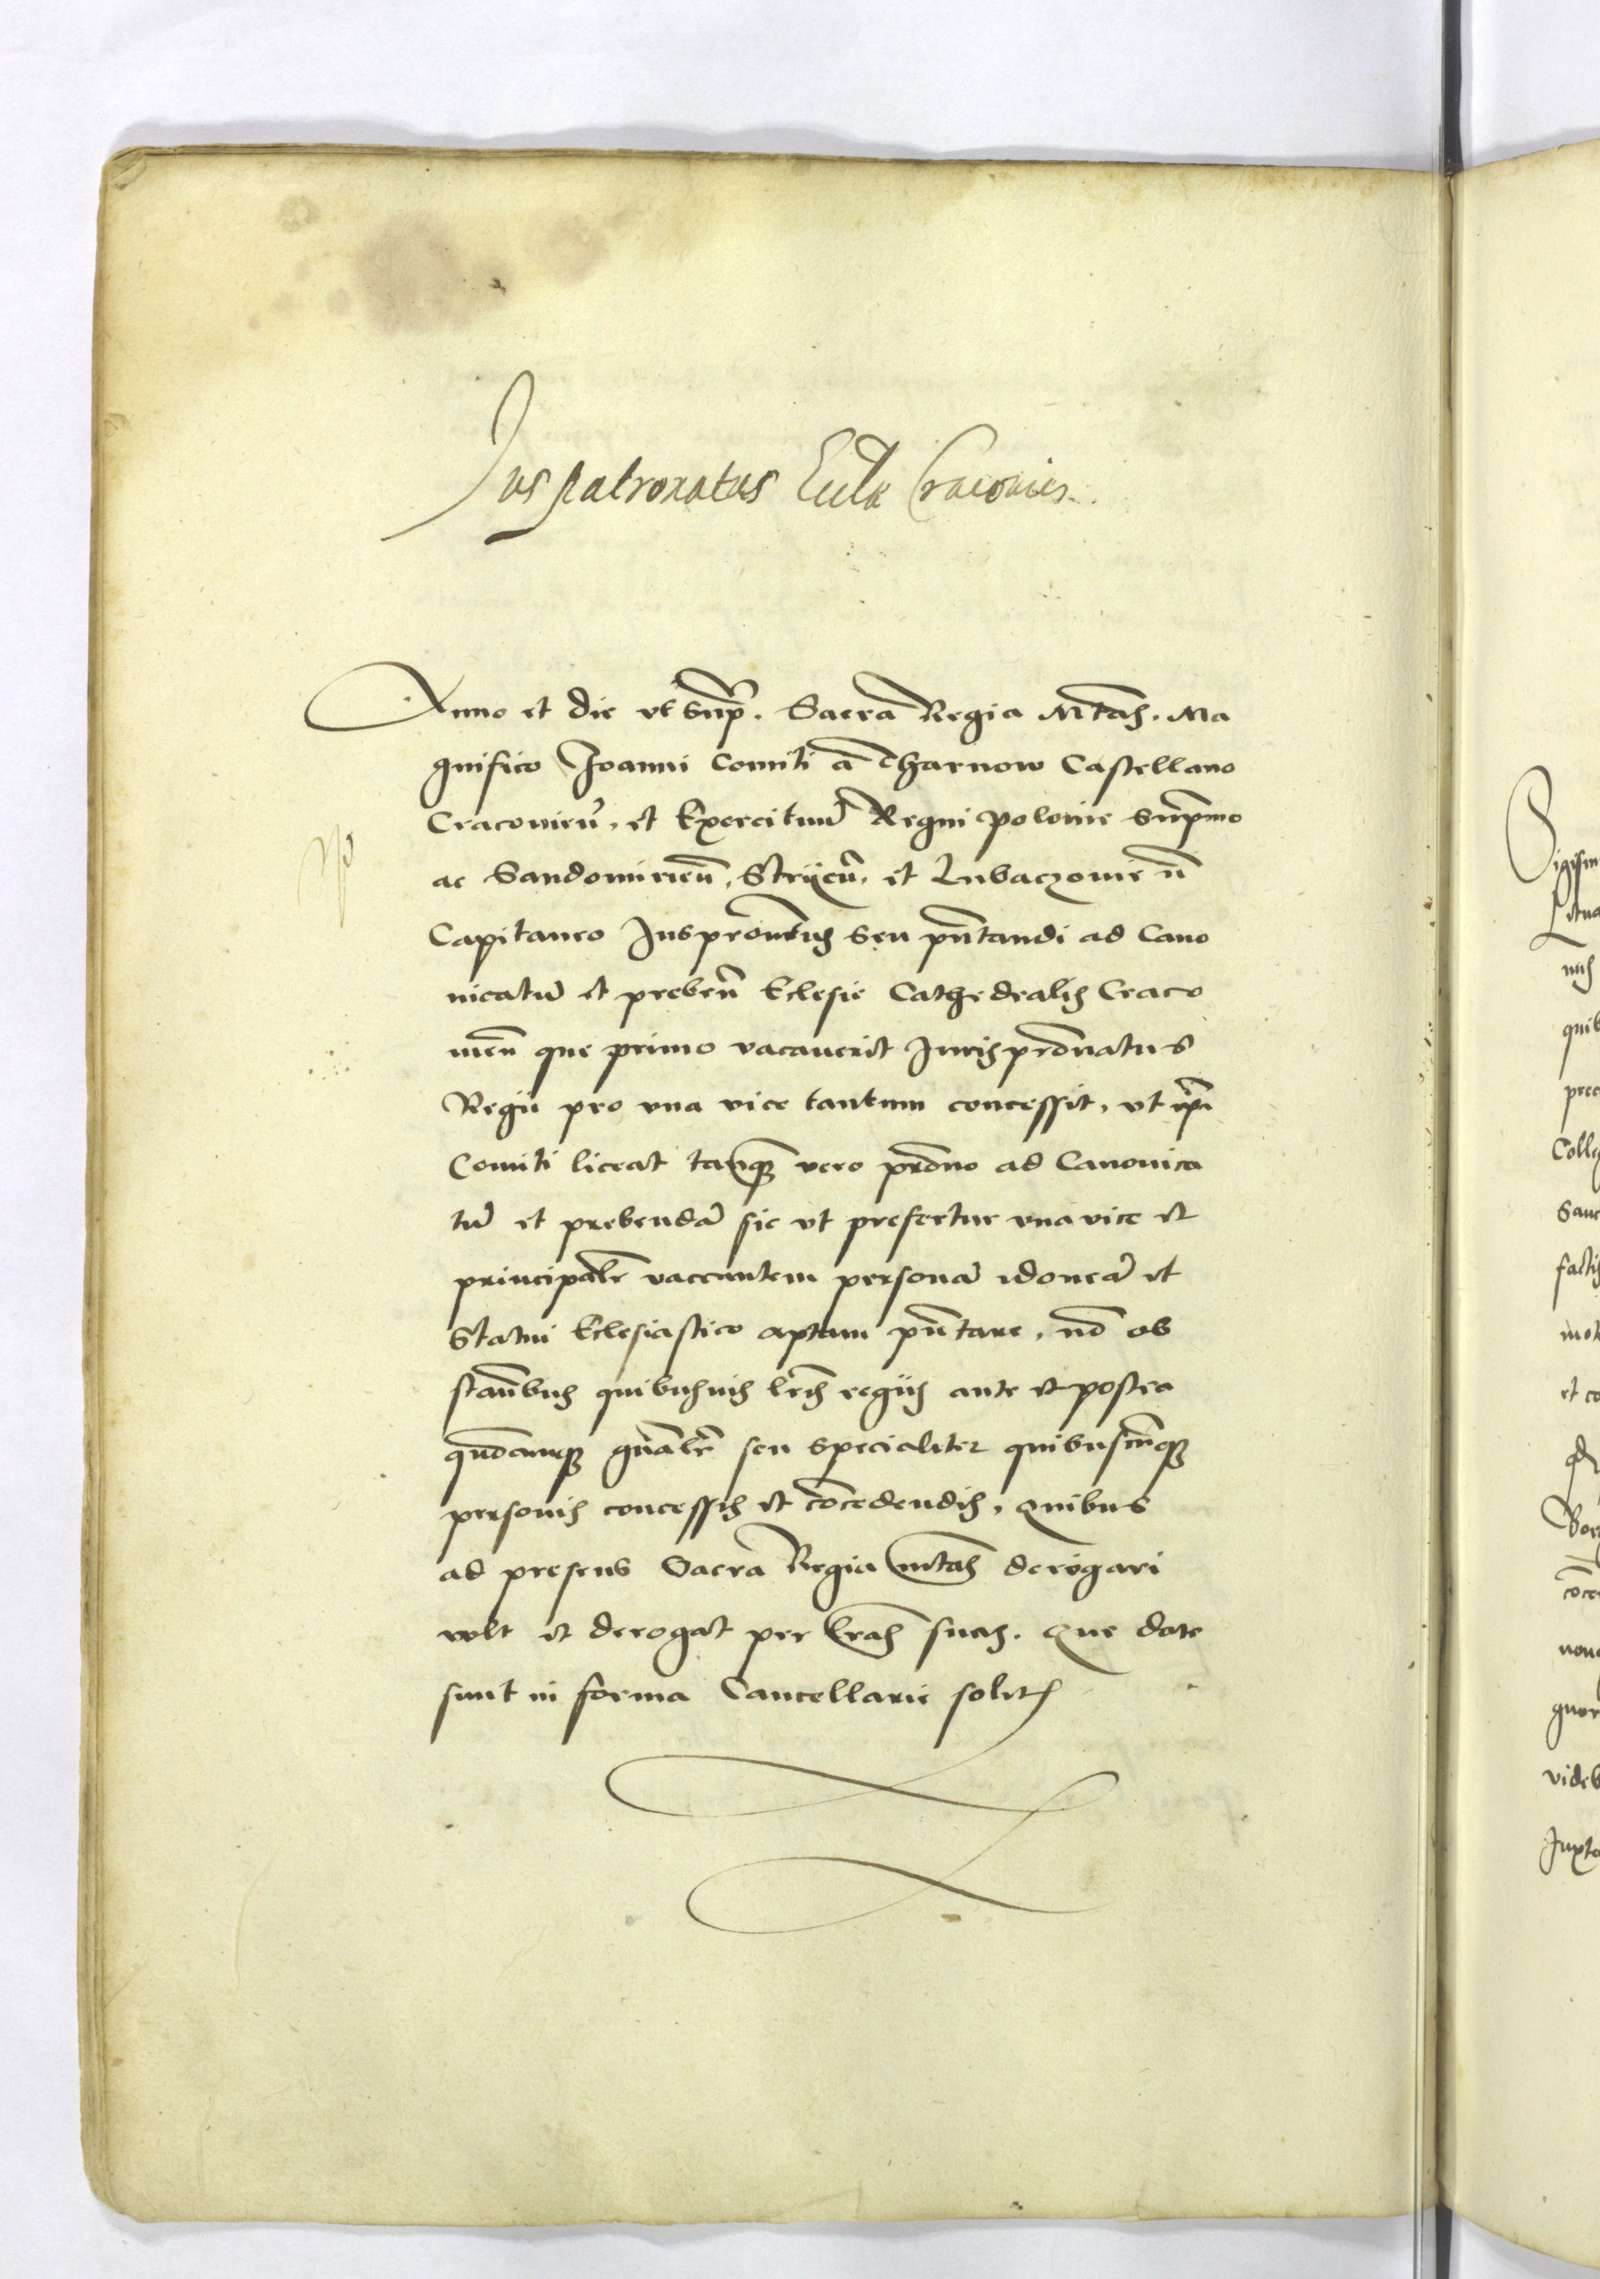 Jus patronatus Eccle Cracovien.
Anno et die ut supr. Sacra Regia Mtas. Ma
gnifico Joanni Comiti a Tharnow Castellano
Cracovien, et Exercituum Regni Polonie Supmo
ac Sandomirien, Stryen, et Lubaczovien
Capitaneo Juspronatus seu pntandi ad Cano
nicatum et preben Eclesie Cathedralis Craco
vien que primo vacaverit Jurispronatus
Regii pro una vice tantum concessit, ut ipi
Comiti liceat tanq vero prono ad Canonica
tum et prebendam sic ut prefertur una vice et
principalr vacantem personam idoneam et
Statui Eclesiastico aptam pntare, non ob
stantbus quibusvis lris regiis ante et postea
quodcumq gnalr seu specialiter quibuscunq
personis concessis et concedendis, quibus
ad presens Sacra Regia mtas derogari
volt et derogat per lras suas. Que date
sunt in forma Cancellarie solita